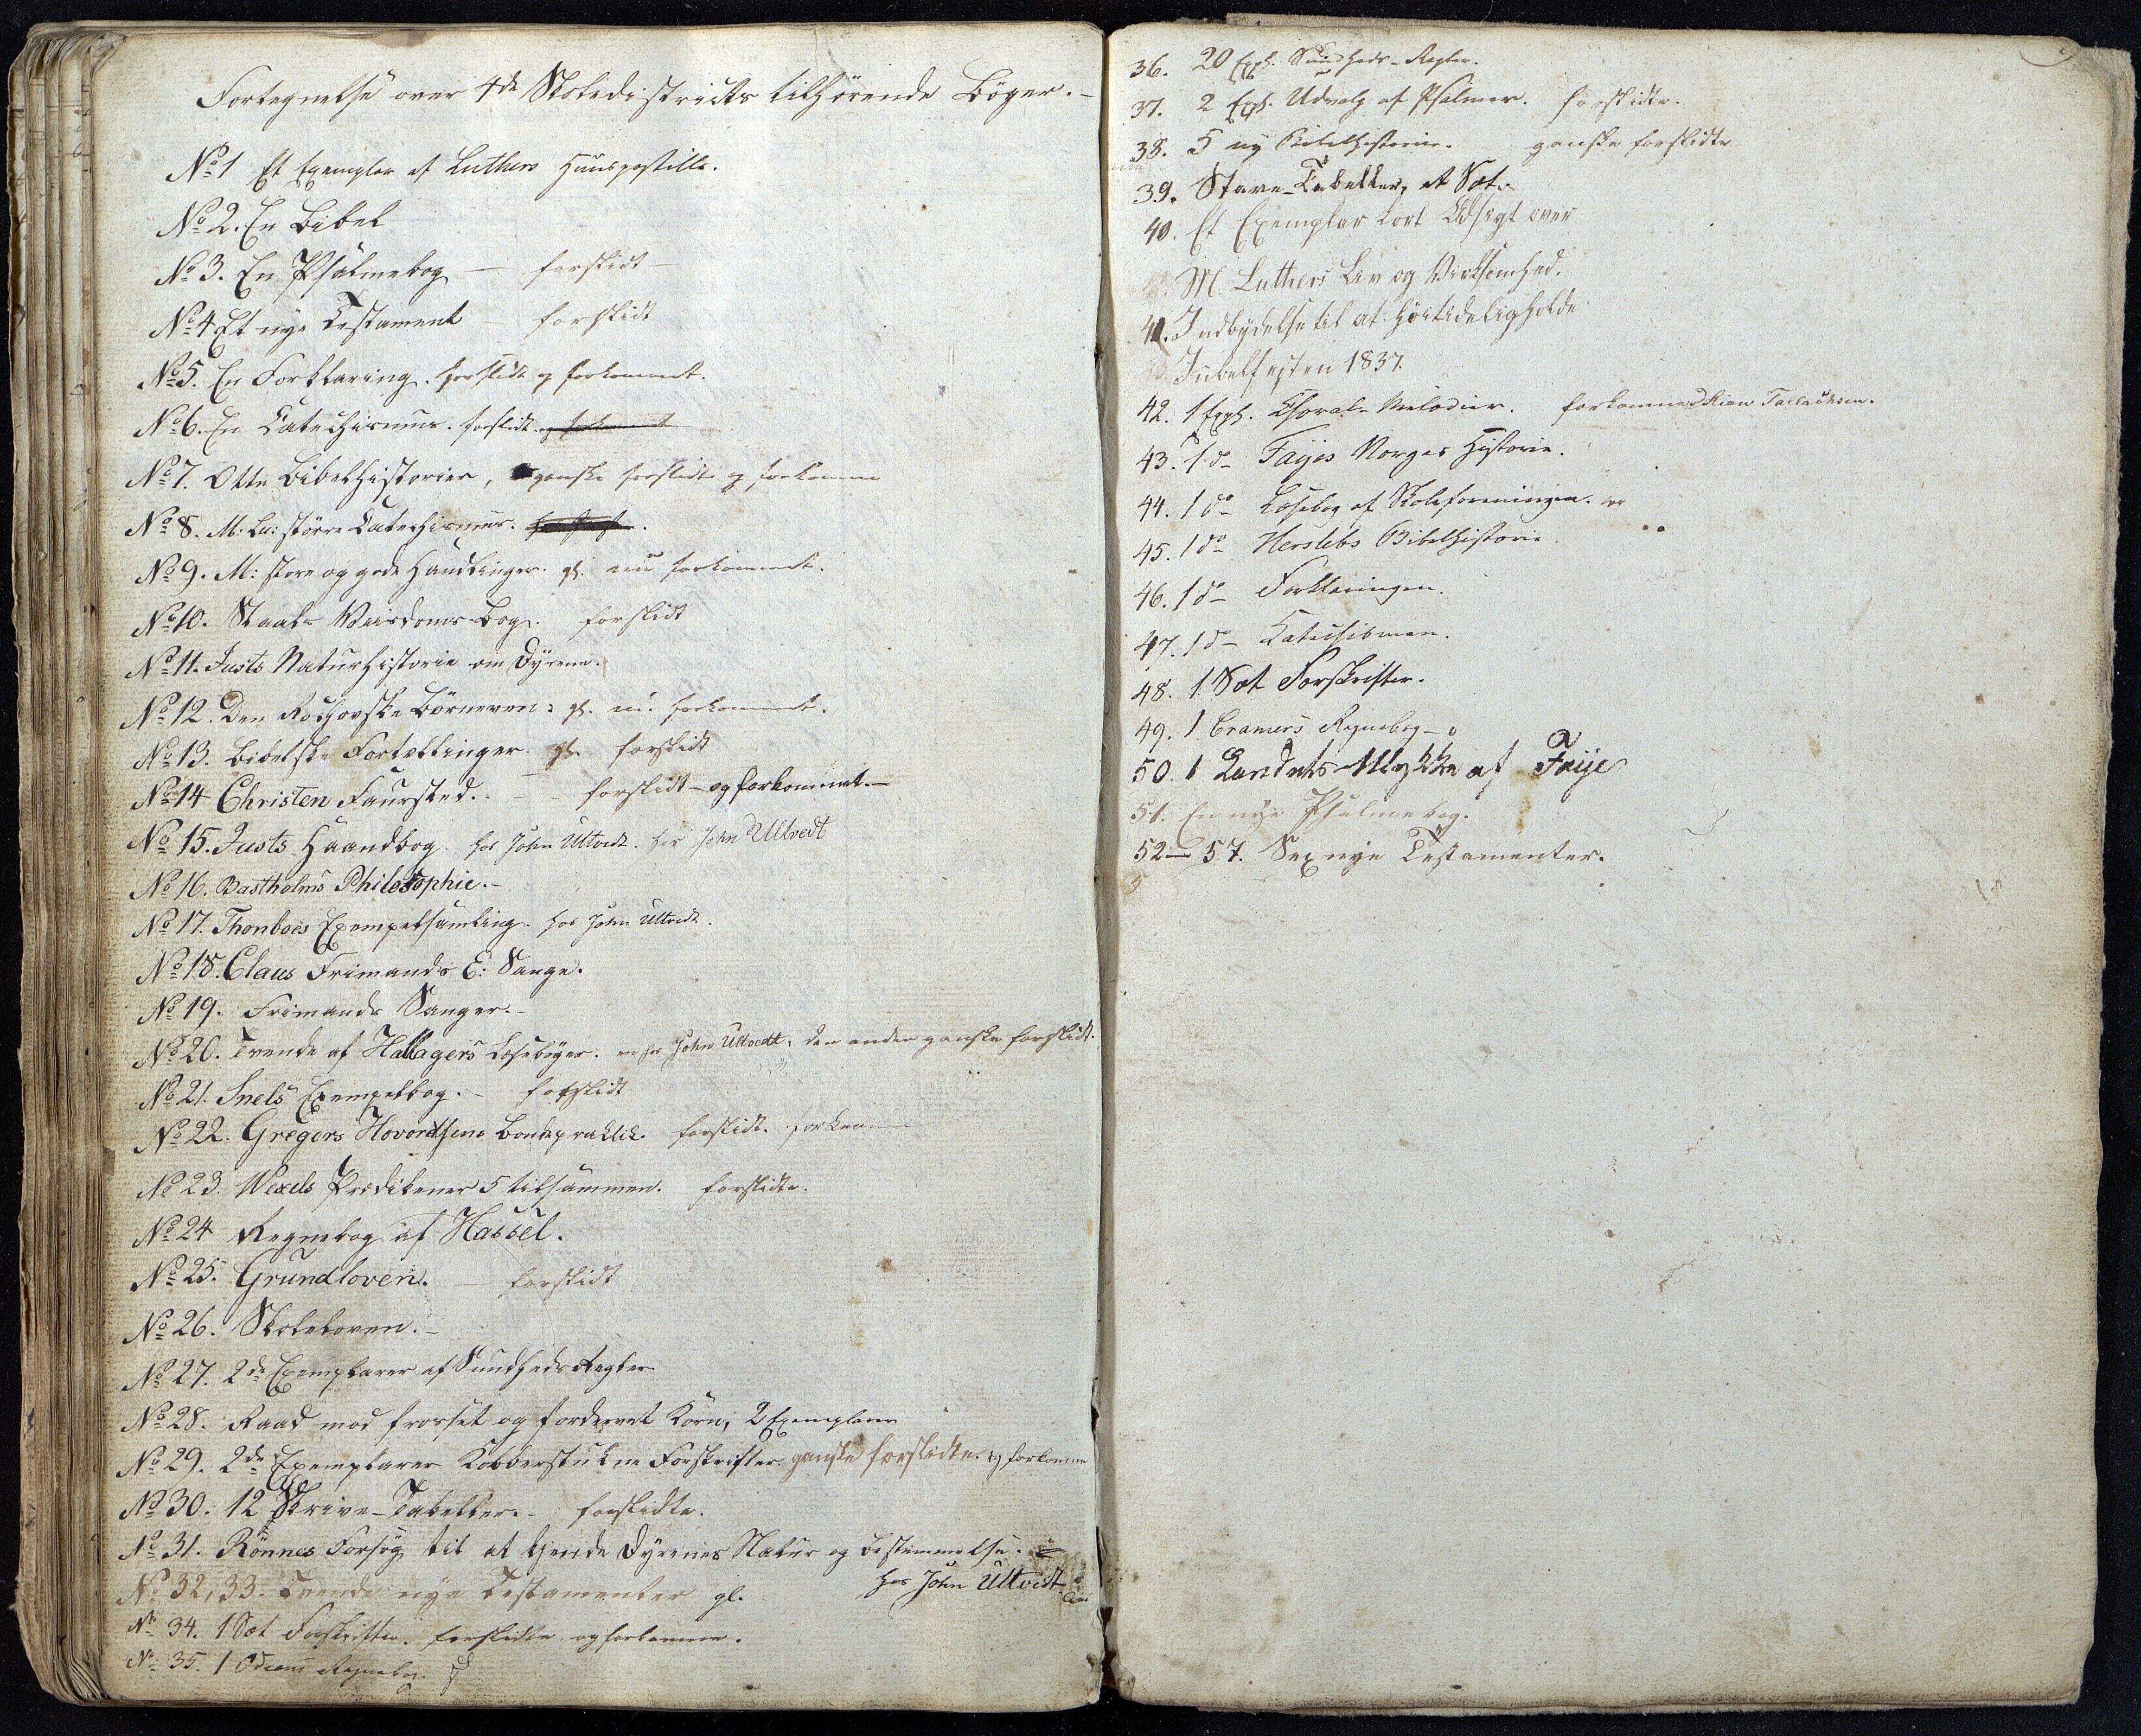 Fortegnelse over 4de Skoledistricts tilhørende Bøger.-
No 1 Et Exemplar af Luthers Huuspostille.
No 2. En Bibel
No 3. En Psalmebog - forslidt -
No 4 Et nye Testament - forslidt
No 5. En Forklaring. forslidt og forkommet.
No 6. En Catechismus. forslidt.
No 7. Otte Bibelhistorier, ganske forslidte og forkomne
No 8. M. Lu: større Catechismus.
No 9. M: store og gode Handlinger. gl. nu forkommet.
No 10. Staals Viisdoms-Bog. forslidt
No 11. Justs Naturhistorie om Dyrene.
No 12. Den Rochovske Børneven: gl. nu forkommet.
No 13. Bibelske Fortællinger. gl. forslidt
No 14 Christen Faursted. - forslidt - og forkommet.-
No 15. Justs Haandbog. hos John Ultvedt. hos John Ultvedt
No 16. Bastholms Philosophie.-
No 17. Thonboes Exempelsamling. hos John Ultvedt.
No 18. Claus Frimands E: Sange.
No 19. Frimands Sanger.-
No 20. Tvende af Hallagers Læsebøger. en hos John Ultvedt, den anden ganske forslidt.
No 21. Snels Exempelbog. - forslidt
No 22. Gregers Hovordsens Bondepraktik. forslidt.
No 23. Wexels Prædikener 5 tilsammen. forslidte.
No 24 Regnebog af Hassel.
No 25. Grundloven. - forslidt
No 26. Skoleloven.-
No 27. 2de Exemplarer af Sundheds Regler
No 28. Raad mod frosset og fordervet Korn, 2 Exemplarer
No 29. 2de Exemplarer Kobberstukne Forskrifter ganske forslidte. og forkomne
No 30. 12 Skrive-Tabeller.- forslidte.
No 31. Rönnes Forsøg til at kjende Dyrenes Natur og Bestemmelse.
hos John Ultvedt
No 32, 33. Tvende nye Testamenter gl.
No 34. 1 Sæt Forskrifter. forslidte og forkomne.
No 35. 1 Regnebog.
36. 20 Expl. Sundheds-Regler.
37. 2 Expl. Udvalg af Psalmer. forslidte.
38. 5 ny Bibelhistorier. ganske forslidte
39. Stave-Tabeller, et Sæt.
40. Et Exemplar kort Udsigt over
M. Luthers Liv og Virksomhed.
41. Indbydelse til at høitideligholde
Jubelfesten 1837.
42. 1 Expl. Choral-Melodier. forkommet
43. 1 do Fayes Norges Historie.
44. 1 do Læsebog af Skoleforeningen.
45. 1 do Herslebs Bibelhistorie.
46. 1 do Forklaringen.
47. 1 do Katechismen.
48. 1 Sæt Forskrifter.
49. 1 Cramers Regnebog -
50. 1 Landets Ulykke af Faye
51. En nye Psalmebog.
52 - 57. Sex nye Testamenter.